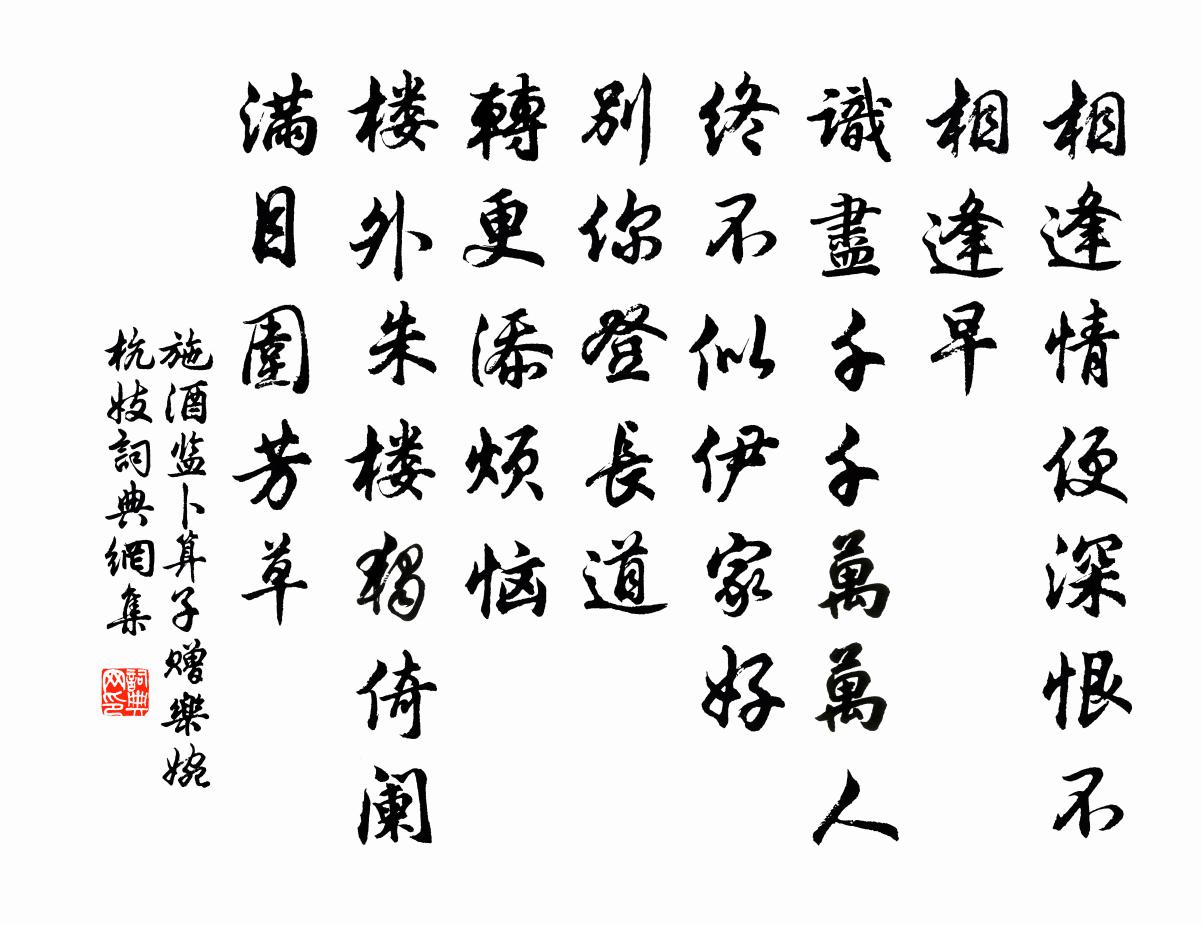 相逢情便深恨不
相逢早
識盡千千萬萬人
终不似伊家好
别你登長道
轉更添烦恼
楼外朱楼獨倚阑
满目圍芳草
施酒监卜算子赠樂婉
杭妓詞典網集
詞典网印